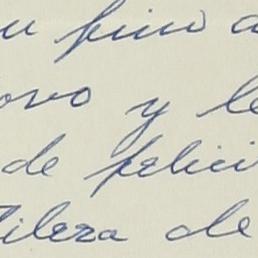 su fino a
ovo y le
de felici
tileza de